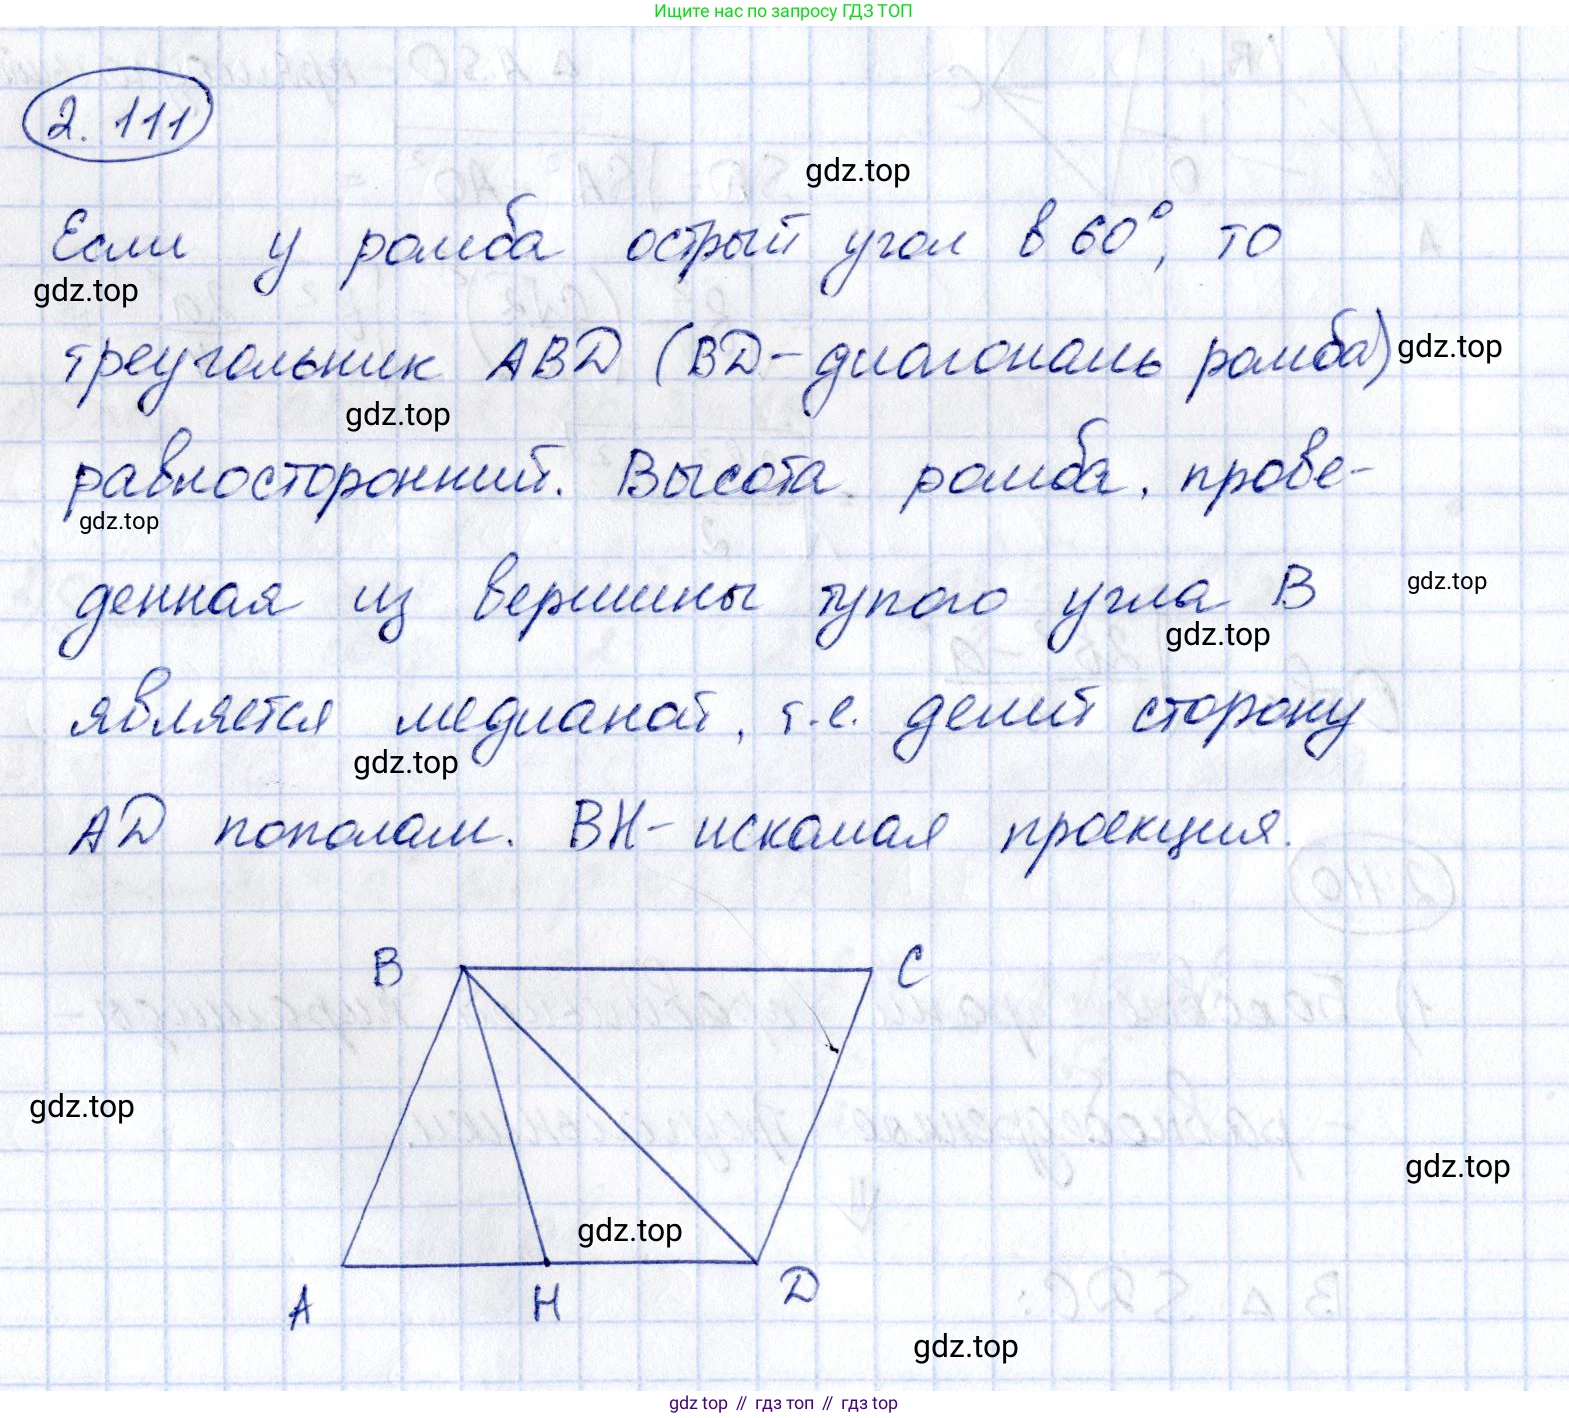 Ищите нас по запросу ГДЗ ТОП
2.111
gdz.top
Если у ромба острый угол в 60°, то
gdz.top
треугольник ABD (BD - диагональ ромба)
gdz.top
gdz.top
равносторонний. Высота ромба, прове-
gdz.top
денная из вершины тупого угла B
gdz.top
gdz.top
является медианой, т.е. делит сторону
gdz.top
AD пополам. BH - искомая проекция.
B C
gdz.top
gdz.top
gdz.top
A H D
gdz.top
gdz.top // гдз топ // гдз.top